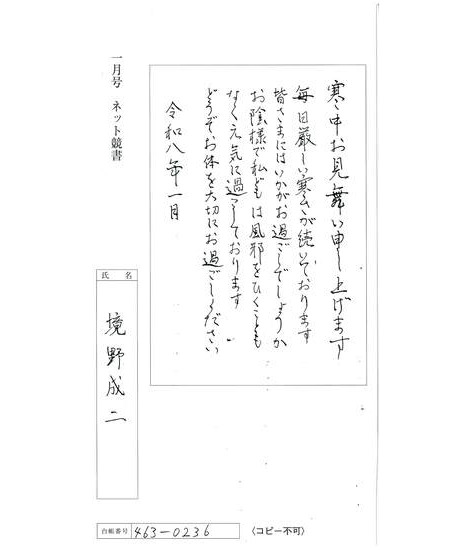 寒中お見舞い申し上げます
毎日厳しい寒さが続いております
皆さまにはいかがお過ごしでしょうか
お陰様で私どもは風邪をひくことも
なく元気に過ごしております
どうぞお体を大切にお過ごしください
令和八年一月
一月号 ネット競書
氏名
境野成二
台帳番号 463-0236
〈コピー不可〉